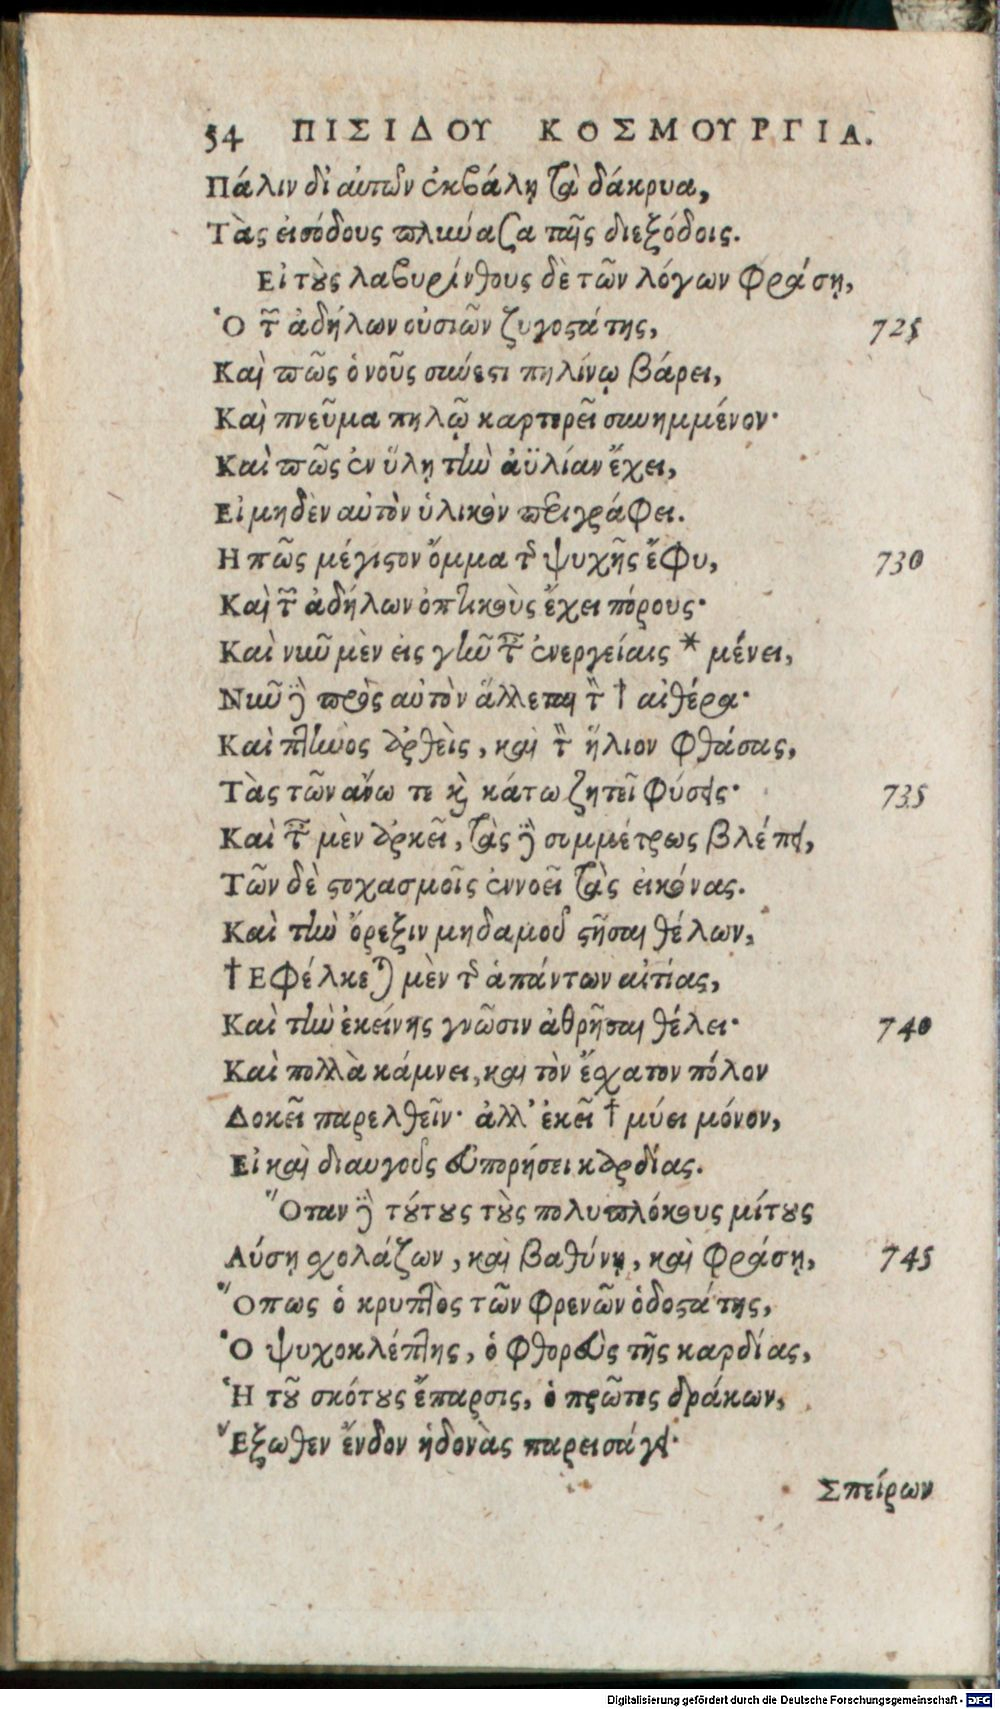 54 ΠΙΣΙΔΟΥ ΚΟΣΜΟΥΡΓΙΑ.
Πάλιν δι' αὐτῶν ἐκβάλῃ τὰ δάκρυα,
Τὰς εἰσόδους πλύνασα ταῖς διεξόδοις.
Εἰ τοὺς λαβυρίνθους δὲ τῶν λόγων φράσῃ,
Ὁ τῶν ἀδήλων οὐσιῶν ζυγοστάτης, 725
Καὶ πῶς ὁ νοῦς σύνεστι πηλίνῳ βάρει,
Καὶ πνεῦμα πηλῷ καρτερεῖ συνημμένον·
Καὶ πῶς ἐν ὕλῃ τὴν ἀϋλίαν ἔχει,
Εἰ μηδὲν αὐτὸν ὑλικὸν περιγράφει.
Η πῶς μέγιστον ὄμμα τῆς ψυχῆς ἔφυ, 730
Καὶ τῶν ἀδήλων ὀπτικοὺς ἔχει πόρους·
Καὶ νῦν μὲν εἰς γῆν ταῖς ἐνεργείαις * μένει,
Νῦν δὲ πρὸς αὐτὸν ἅλλεται τὸν † αἰθέρα·
Καὶ πτηνὸς ἀρθεὶς, καὶ τὸν ἥλιον φθάσας,
Τὰς τῶν ἄνω τε καὶ κάτω ζητεῖ φύσεις· 735
Καὶ ταῖς μὲν ἀρκεῖ, τὰς δὲ συμμέτρως βλέπει,
Τῶν δὲ στοχασμοῖς ἐννοεῖ τὰς εἰκόνας.
Καὶ τὴν ὄρεξιν μηδαμοῦ στῆσαι θέλων,
† Εφέλκεται μὲν τῆς ἁπάντων αἰτίας,
Καὶ τὴν ἐκείνης γνῶσιν ἀθρῆσαι θέλει· 740
Καὶ πολλὰ κάμνει, καὶ τὸν ἔσχατον πόλον
Δοκεῖ παρελθεῖν· ἀλλ' ἐκεῖ † μύει μόνον,
Εἰ καὶ διαυγοῦς εὐπορήσει καρδίας.
Ὅταν δὲ τούτους τοὺς πολυπλόκους μίτους
Λύσῃ σχολάζων, καὶ βαθύνῃ, καὶ φράσῃ, 745
Ὅπως ὁ κρυπτὸς τῶν φρενῶν ὁδοστάτης,
Ὁ ψυχοκλέπτης, ὁ φθορεὺς τῆς καρδίας,
Ἡ τοῦ σκότους ἔπαρσις, ὁ πρῶτος δράκων,
Ἔξωθεν ἔνδον ἡδονὰς παρεισάγει·
Σπείρων
Digitalisierung gefördert durch die Deutsche Forschungsgemeinschaft - DFG